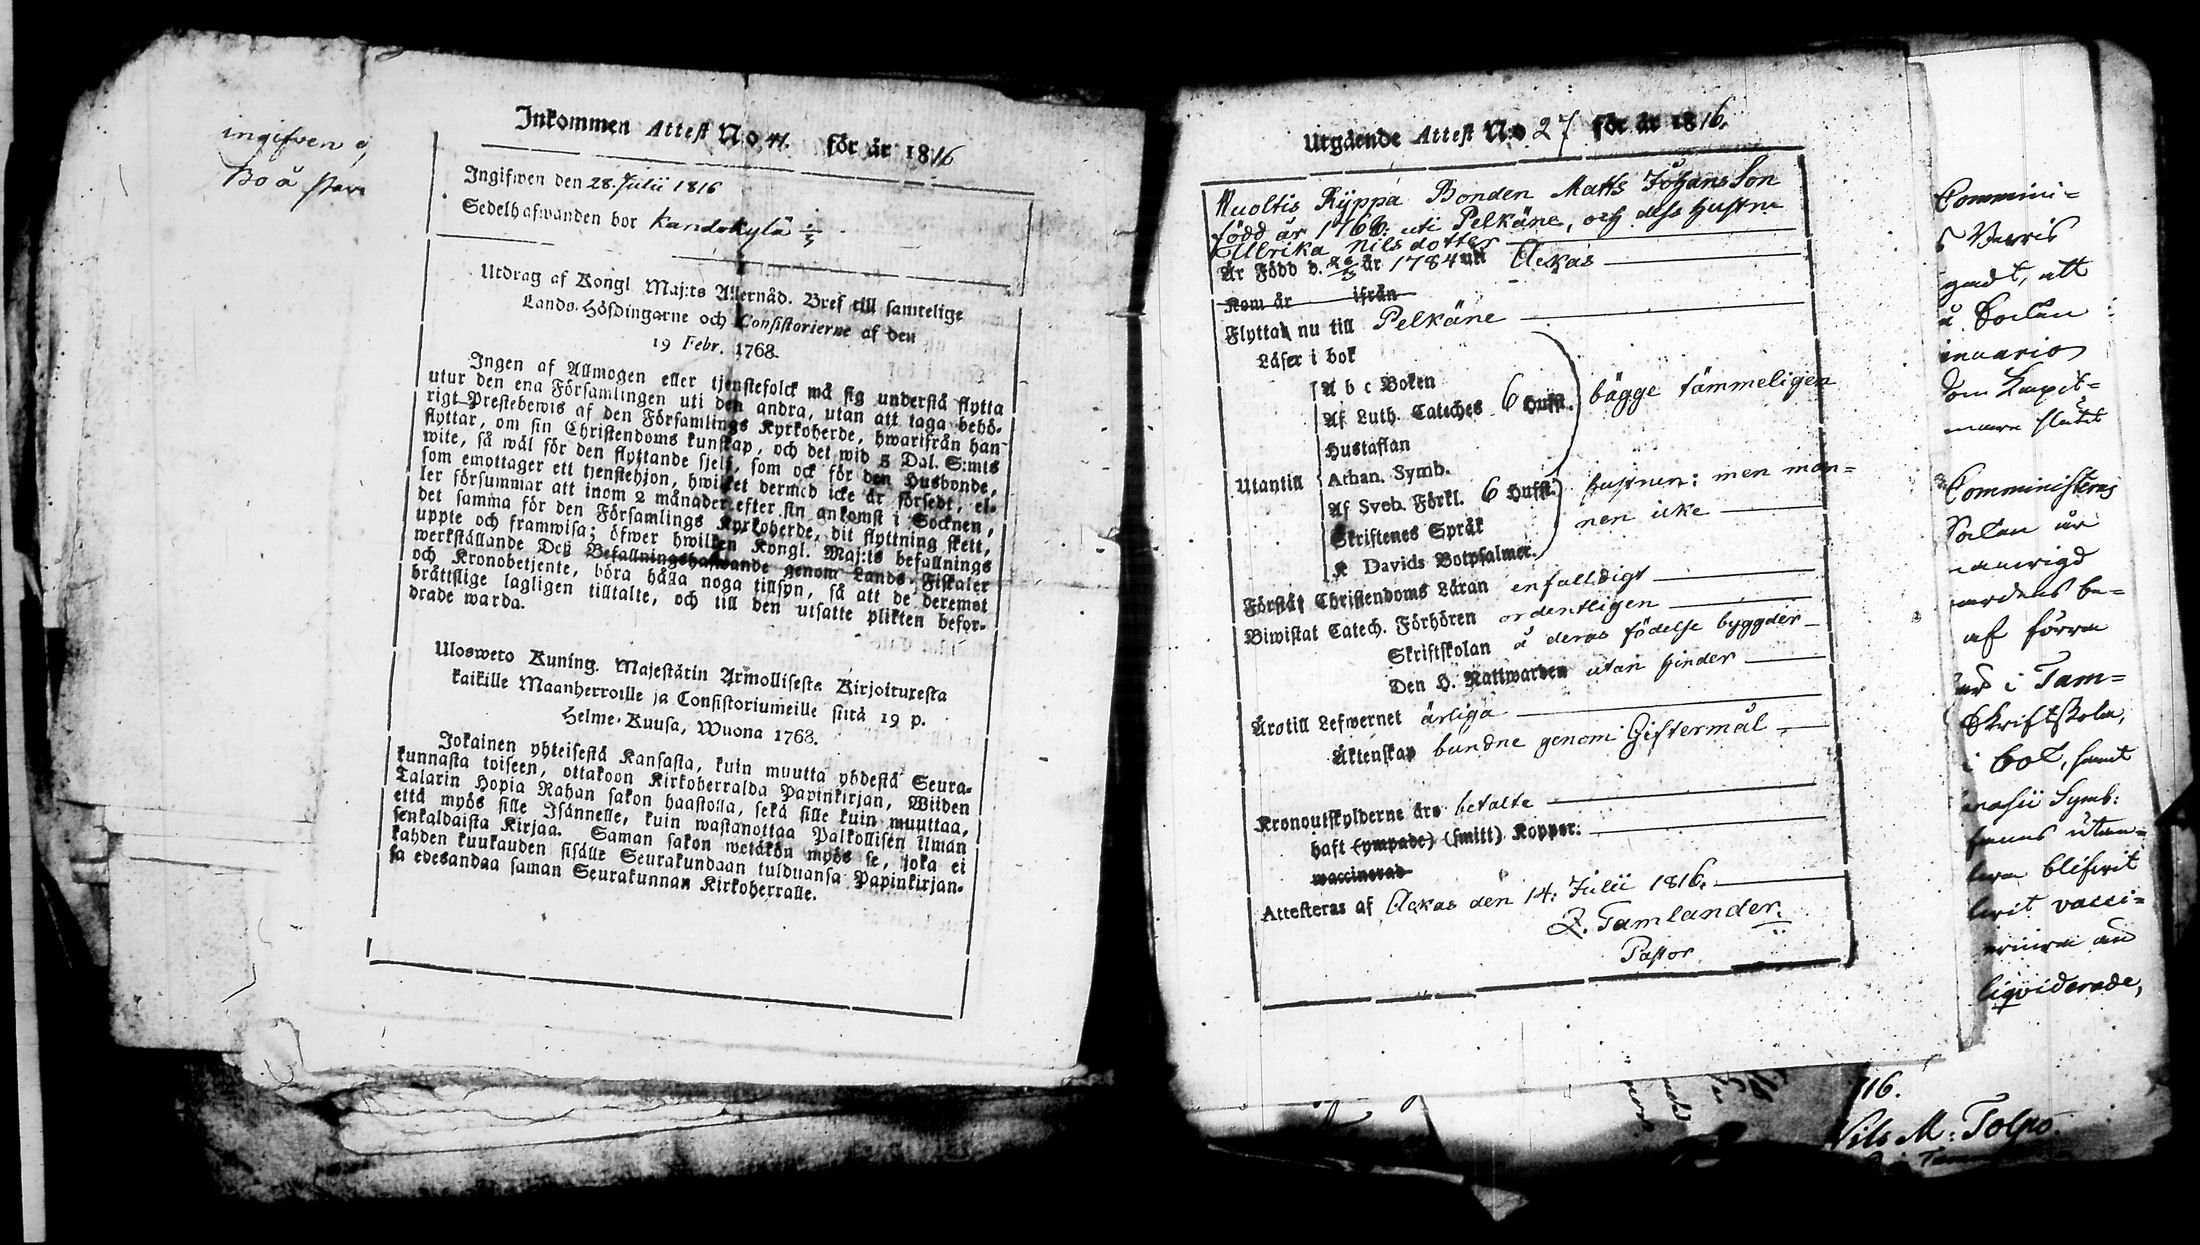 ingifven
Bo å
Inkommen Attest N:o 41. för år 1816
Ingifwen den 28. Julii 1816
Sedelhafwanden bor Kandokylä
Utdrag af Kongl Maj:ts Allernåd. Bref till samtelige
Lands-Höfdingarne och Consistorierne af den
19 Febr. 1768.
Ingen af Allmogen eller tjenstefolck må sig understå flytta
utur den ena Församlingen uti den andra, utan att taga behö-
rigt Prestebewis af den Församlings Kyrkoherde, hwarifrån han
flyttar, om sin Christendoms kunskap, och det wid 5 Dal. S:mts
wite, så wäl för den flyttande sjelf, som ock för den Husbonde,
som emottager ett tjenstehjon, hwilket dermed icke är försedt, el-
ler försummar att inom 2 månader efter sin ankomst i Socknen,
det samma för den Församlings Kyrkoherde, dit flyttning skett,
uppte och framwisa; öfwer hwilken Kongl. Maj:ts befallnings
werkställande Deß Befallningshafwande genom Lands-Fiskaler
och Kronobetjente, böra hålla noga tillsyn, så att de deremot
bråttslige lagligen tilltalte, och till den utsatte plikten befor-
drade warda.
Uloswero Kuning. Majestätin Armollisesta Kirjoituxesta
kaikille Maanherroille ja Consistoriumeille siitä 19 p.
Helme-Kuusa, Wuona 1768.
Jokainen yhteisestä Kansasta, kuin muutta yhdestä Seura-
kunnasta toiseen, ottakoon Kirkoherralda Papinkirjan, Wiiden
Talarin Hopia Rahan sakon haastolla, sekä sille kuin muuttaa,
että myös sille Isännelle, kuin wastanottaa Palkollisen ilman
senkaldaista Kirjaa. Saman sakon wetäkön myös se, joka ei
kahden kuukauden sisälle Seurakundaan tulduansa Papinkirjan-
sa edesandaa saman Seurakunnan Kirkoherralle.
Utgående Attest N:o 27 för år 1816.
Nuoltis Ryppä Bonden Matts Johansson
född år 1766. uti Pelkäne, och dess hustru
Ullrika Nilsdotter
Är Född d. 26/5 år 1784 uti Ackas
Kom år ifrån
Flyttar nu till Pelkäne
Läser i bok
A b c Boken
Af Luth. Cateches 6 Hufst. bägge tämmeligen
Hustaflan
Utantill Athan. Symb.
Af Sveb. Förkl. 6 Hufst. hustrun: men man=
Skriftenes Språk nen icke
K Davids Botpsalmer.
Förstår Christendoms Läran enfalldigt
Biwistat Catech. Förhören ordentligen
Skriftskolan å deras födelse byggder
Den H. Nattwarden utan hinder
Äro till Lefwernet ärliga
Äktenskap bundne genom Giftermål
Kronoutskylderne äro betalte
haft (ympade) (smitt) Koppor:
waccinerad
Attesteras af Ackas den 14. Julii 1816.
Z. Tamlander.
Pastor
Commini=
att
Socken
Kapit=
Comministers
Socken är
be=
af förra
i Tam=
Skriftskola,
i bok, samt
Symb:
utan=
blifvit
vacci=
liqviderade,
16.
Nils M: Tolpo.